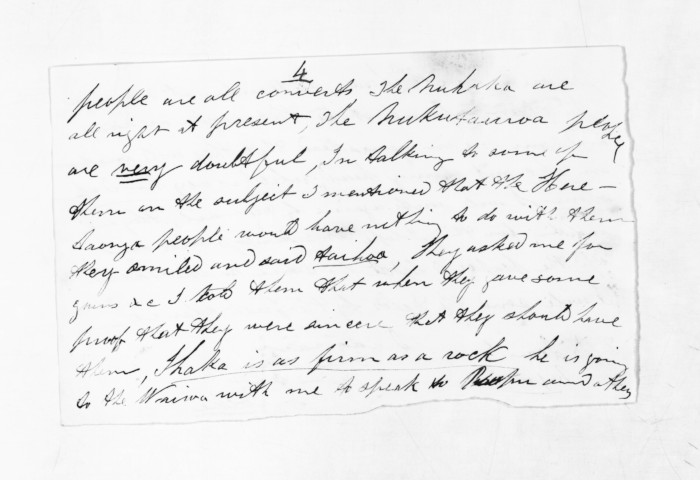 4
people are all converts The Nuhaka are
all right at present, The Nukutaurua people
are very doubtful, In talking to some of
them on the subject I mentioned that the Here-
taonga people would have nothing to do with them
they smiled and said taihoa, They asked me for
guns &c I told them that when they gave some
proof that they were sincere that they should have
them, Ihaka is as firm as a rock he is going
to the Wairoa with me to speak to and others